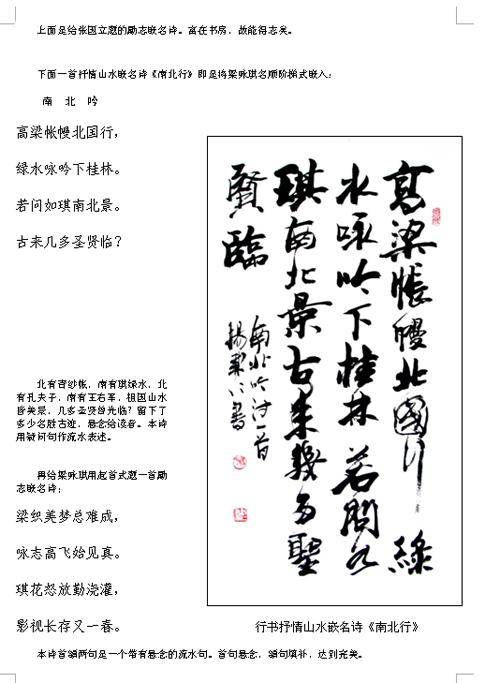 上面是给张国立题的励志嵌名诗。寓在书房，故能得志矣。
下面一首抒情山水嵌名诗《南北行》即是将梁咏琪名顺阶梯式嵌入：
南 北 吟
高梁帐幔北国行，
绿水咏吟下桂林。
若问如琪南北景。
古来几多圣贤临？
高梁帐幔北國行 綠
水咏吟下桂林 若問如
琪南北景古来幾多聖
賢臨
南北吟诗一首
北有青纱帐，南有琪绿水，北
有孔夫子，南有王右军，祖国山水
皆美景，几多圣贤曾光临？留下了
多少名胜古迹，悬念给读者。本诗
用疑问句作流水表述。
再给梁咏琪用起首式题一首励
志嵌名诗：
梁织美梦总难成，
咏志高飞始见真。
琪花怒放勤浇灌，
影视长存又一春。
行书抒情山水嵌名诗《南北行》
本诗首额两句是一个带有悬念的流水句。首句悬念，额句填补，达到完美。